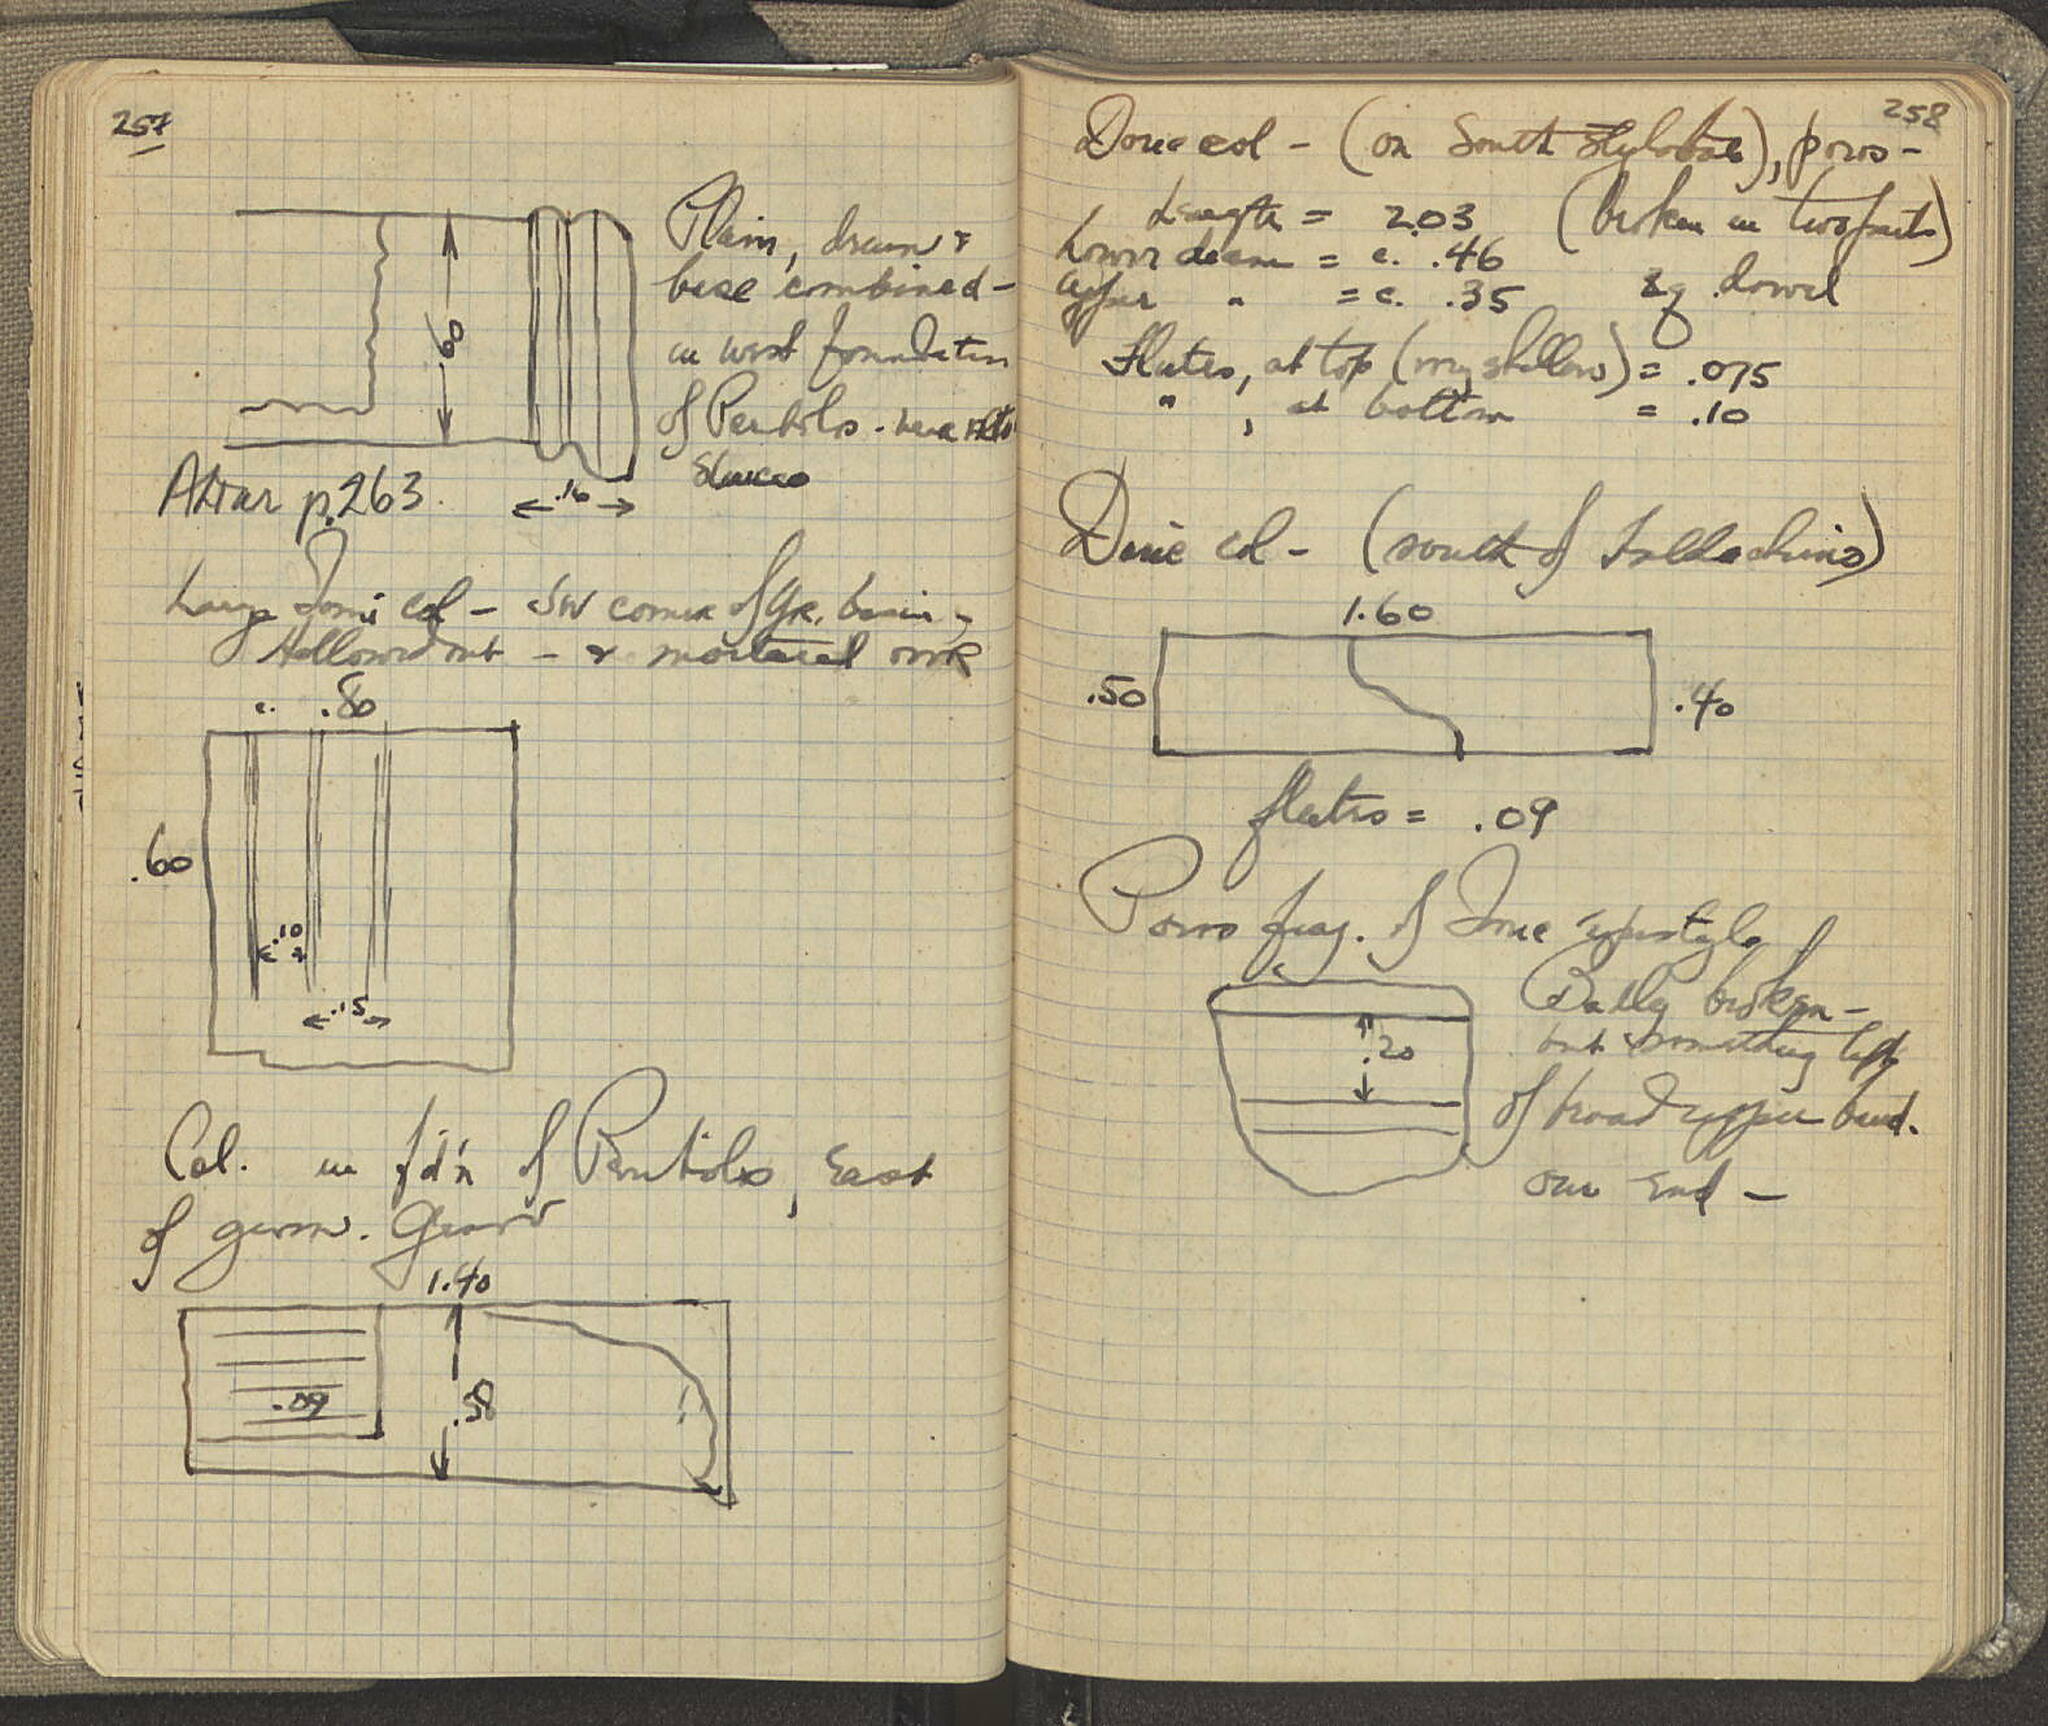 257
Plain, drum &
base combined -
in west foundation
of Peribolos - near
stucco
.60
.16
Altar p. 263.
Large Ionic col - SW corner of Gr. basin,
Hollowed out - & mortared work
c. .80
.60
.10
.15
Col. in f'd'n of Peribolos, East
of germ.
1.40
.09
.58
258
Doric col - (on South Stylobate), poros -
Length = 2.03 (broken in two parts)
Lower diam = c. .46
Upper " = c. .35 sq dowel
Flutes, at top (very shallow) = .075
" , at bottom = .10
Doric col - (south of
1.60
.50
.40
flutes = .09
Poros frag. of Ionic epistyle
Badly broken -
but something left
of broad upper band.
.20
one End -